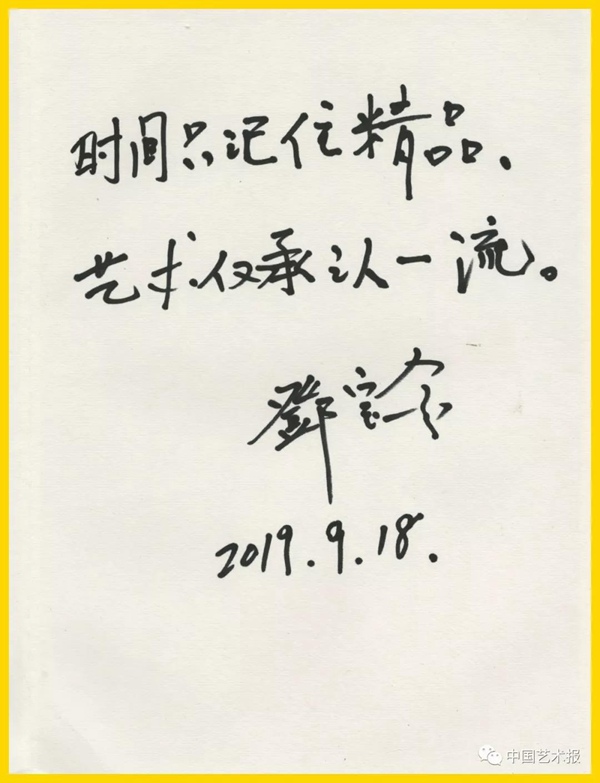 时间只记住精品、
艺术仅承认一流。
鄧宝金
2019.9.18.
中国艺术报